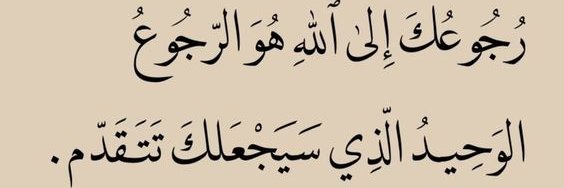 رُجُوعُكَ إِلىٰ ٱللهِ هُوَ الرّجُوعُ
الوَحِيدُ الّذِي سَيَجْعَلكَ تَتَقَدّم.